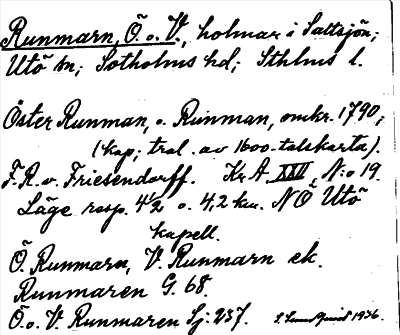 Runmarn, Ö. o. V., holmar i Saltsjön;
Utö sn; Sotholms hd; Sthlms l.
Öster Runman, o. Runman, omkr. 1790,
(kop; trol. av 1600-talskarta).
F. R. v. Friesendorff. Kr. A. XXII, N:o 19.
Läge resp. 4½ o. 4,2 km. NÖ Utö
kapell.
Ö. Runmarn, V. Runmarn ek.
Runmaren G. 68.
Ö. o. V. Runmaren Sj. 237. S. Lundquist 1936.